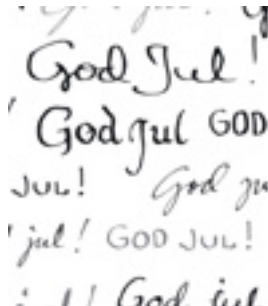 God Jul!
God Jul GOD
JUL! God
jul! GOD JUL!
God jul